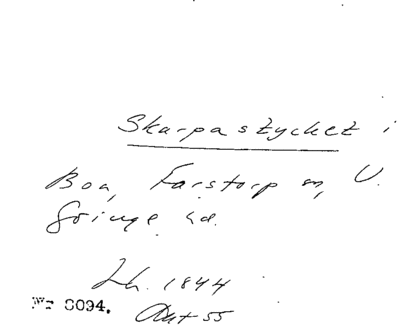 Skarpastycket i
Boa, Farstorp sn, V.
Göinge hd.
Lh. 1844
Nr 0094. Avt 55